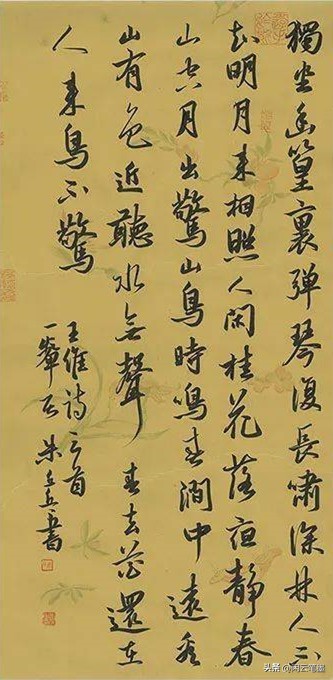 獨坐幽篁裏弹琴復長嘯深林人不
知明月来相照人闲桂花落夜靜春
山空月出驚山鳥時鳴春澗中遠看
山有色近聽水無聲春去花還在
人来鳥不驚
王維詩三首
朱 書
头条 @闲云笔